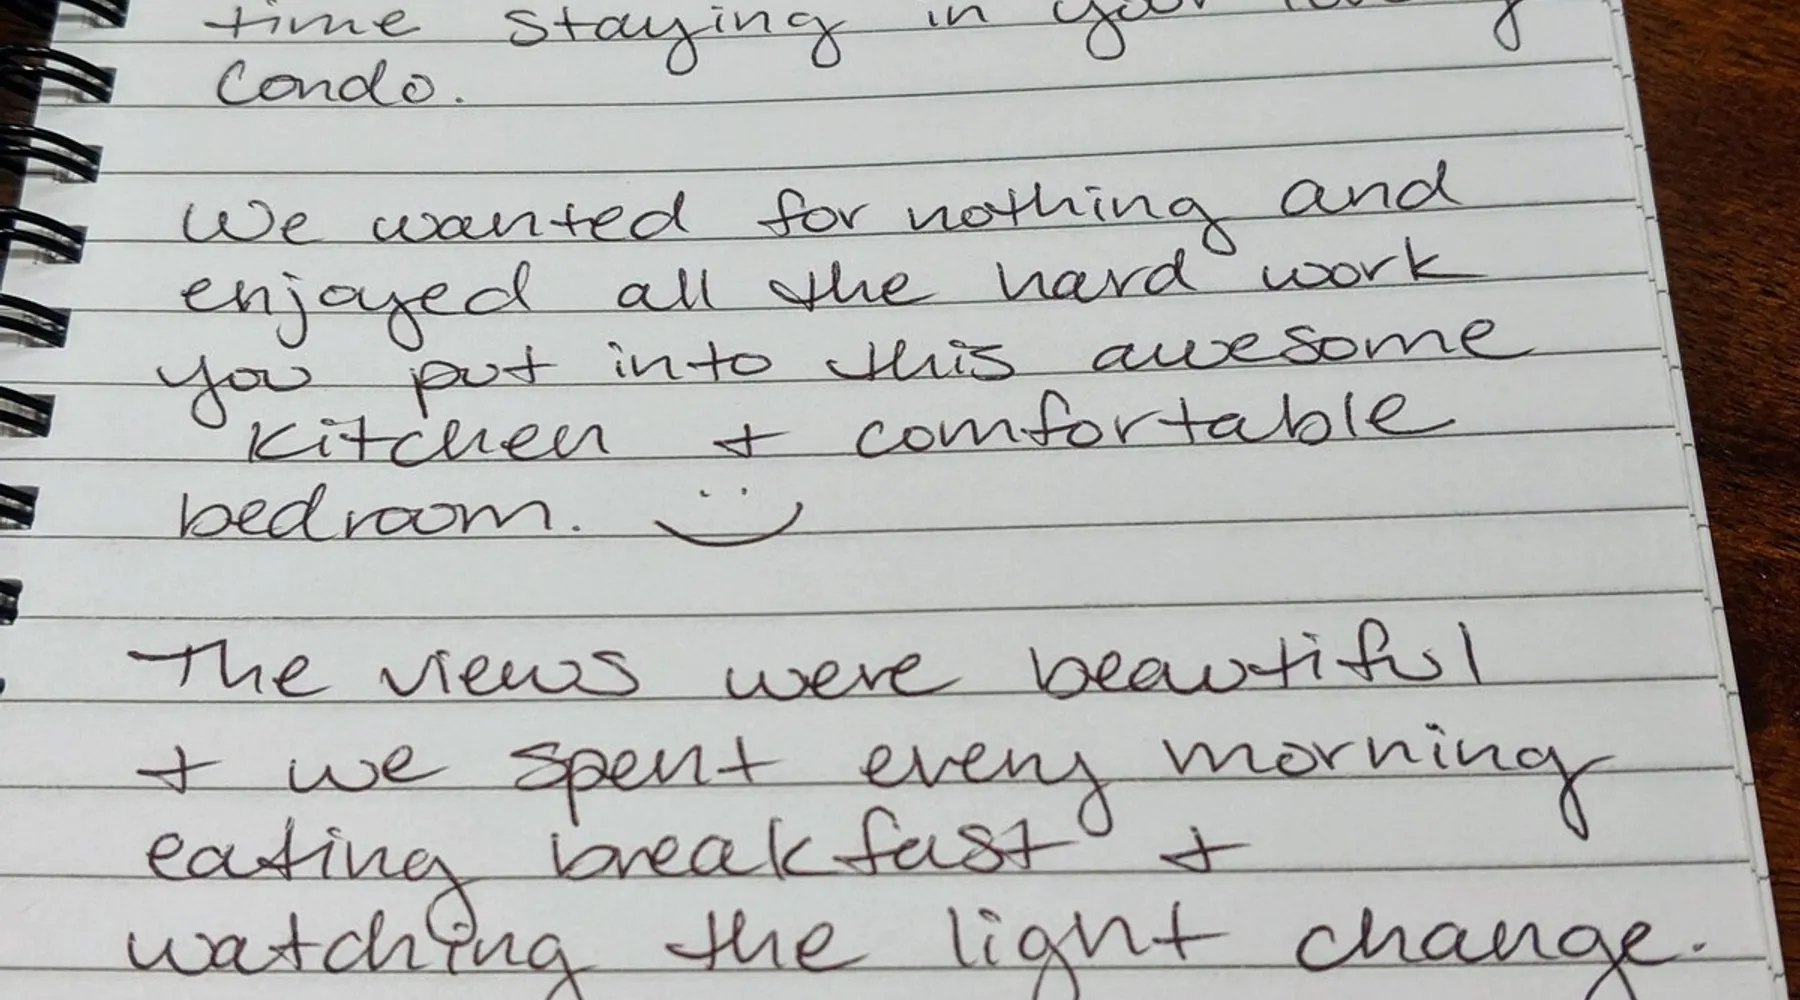 time staying in your lovely
condo.
We wanted for nothing and
enjoyed all the hard work
you put into this awesome
kitchen + comfortable
bedroom.
The views were beautiful
+ we spent every morning
eating breakfast +
watching the light change.